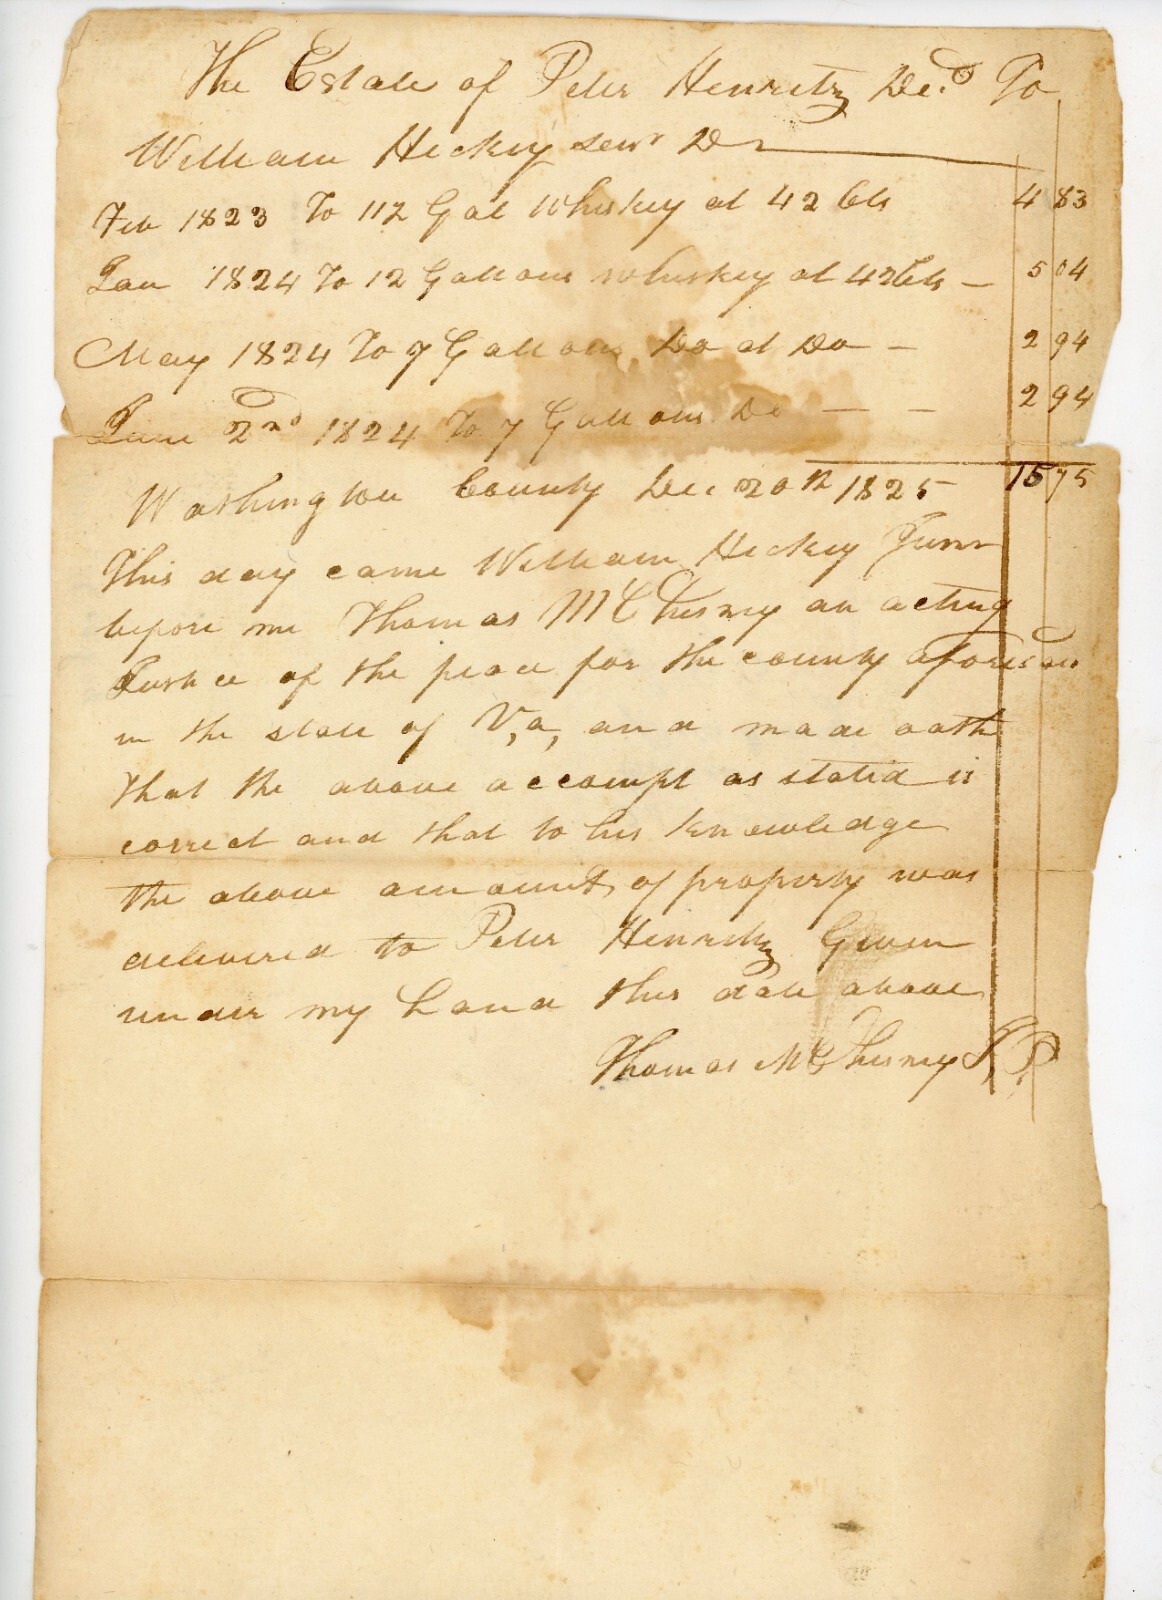 The Estate of Peter Henritz Decd To
William Hickey Senr Dr
Feb 1823 To 11½ Gal Whiskey at 42 Cts 4 83
Jan 1824 To 12 Gallons whiskey at 42 Cts – 5 04
May 1824 To 7 Gallons Do at Do – 2 94
June 2nd 1824 To 7 Gallons Do – – 2 94
Washington County Dec 20th 1825 15 75
This day came William Hickey Junr
before me Thomas McChesney an acting
Justice of the peace for the county aforesd
in the state of V,a, and made oath
that the above accompt as stated is
correct and that to his knowledge
the above amount of property was
delivered to Peter Henritz Given
under my hand this date above
Thomas McChesney J,P,